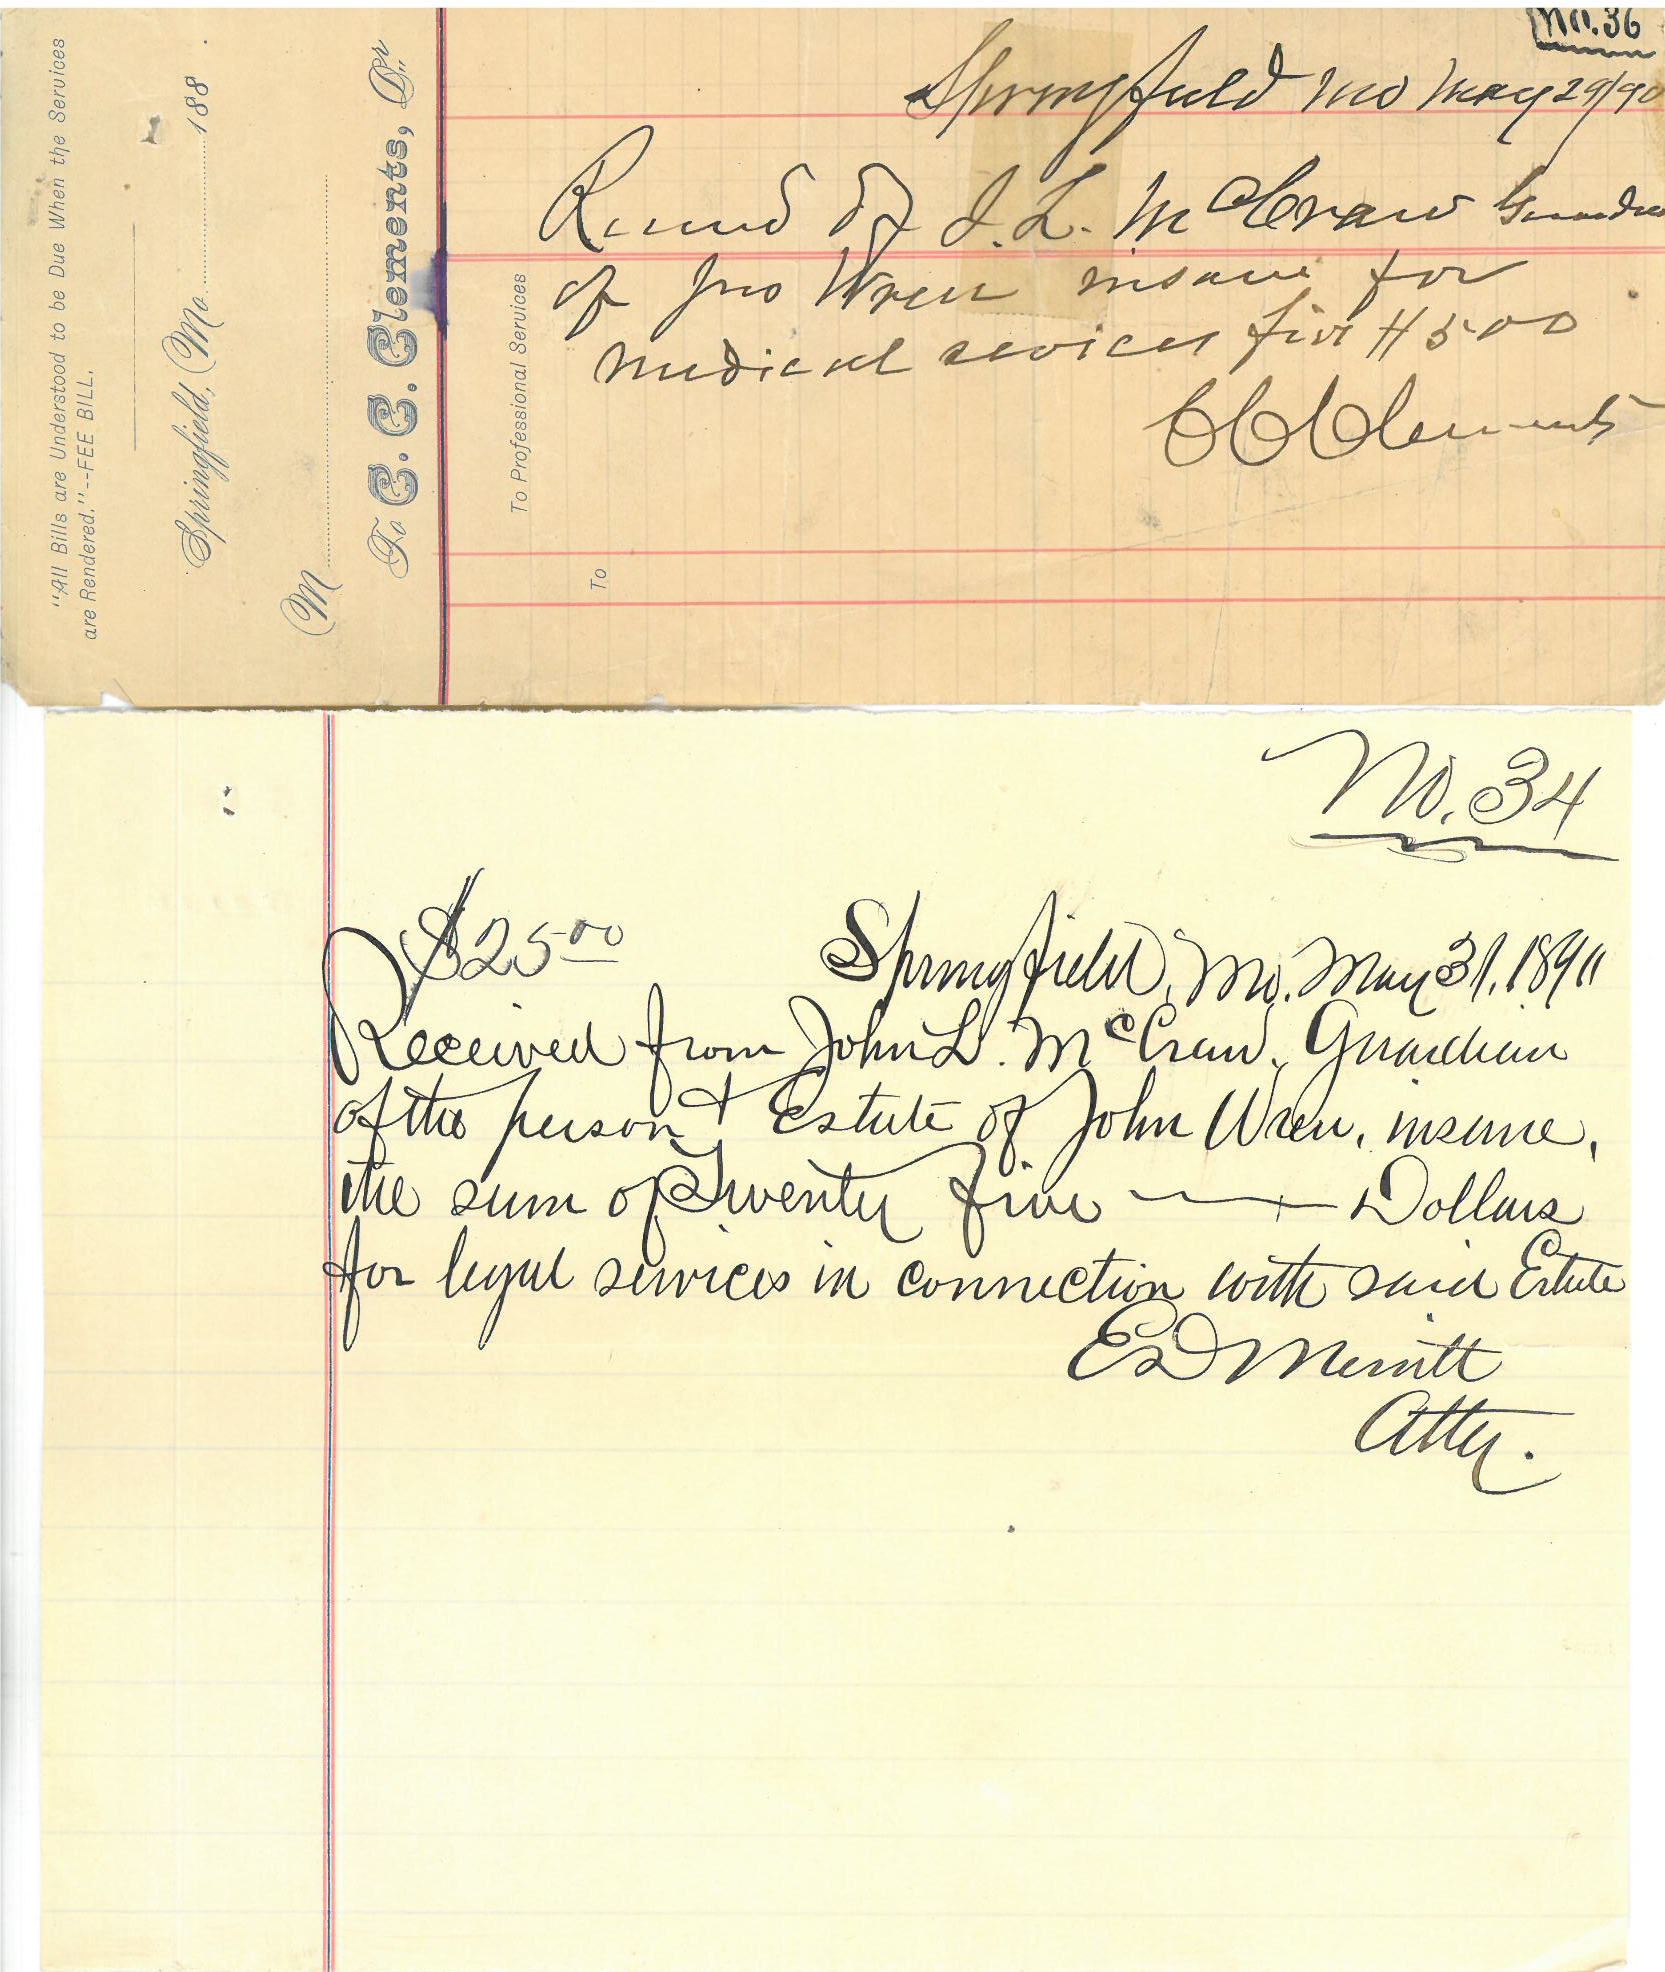 No. 36
Springfield Mo May 29/90
Received of J. L. McCraw Guardian
of Jno Wren insane for
medical sevices five $500
C C Clements
"All Bills are Understood to be Due When the Services
are Rendered."--FEE BILL.
Springfield, Mo. 188 .
M
To C. C. Clements, Dr.
To Professional Services
To
No. 34
$25 00 Springfield, Mo. May 31, 1890
Received from John L. McCraw, Guardian
of the person & Estate of John Wren, insane,
the sum of Twenty five — Dollars
for legal services in connection with said Estate
E D Merritt
Atty.